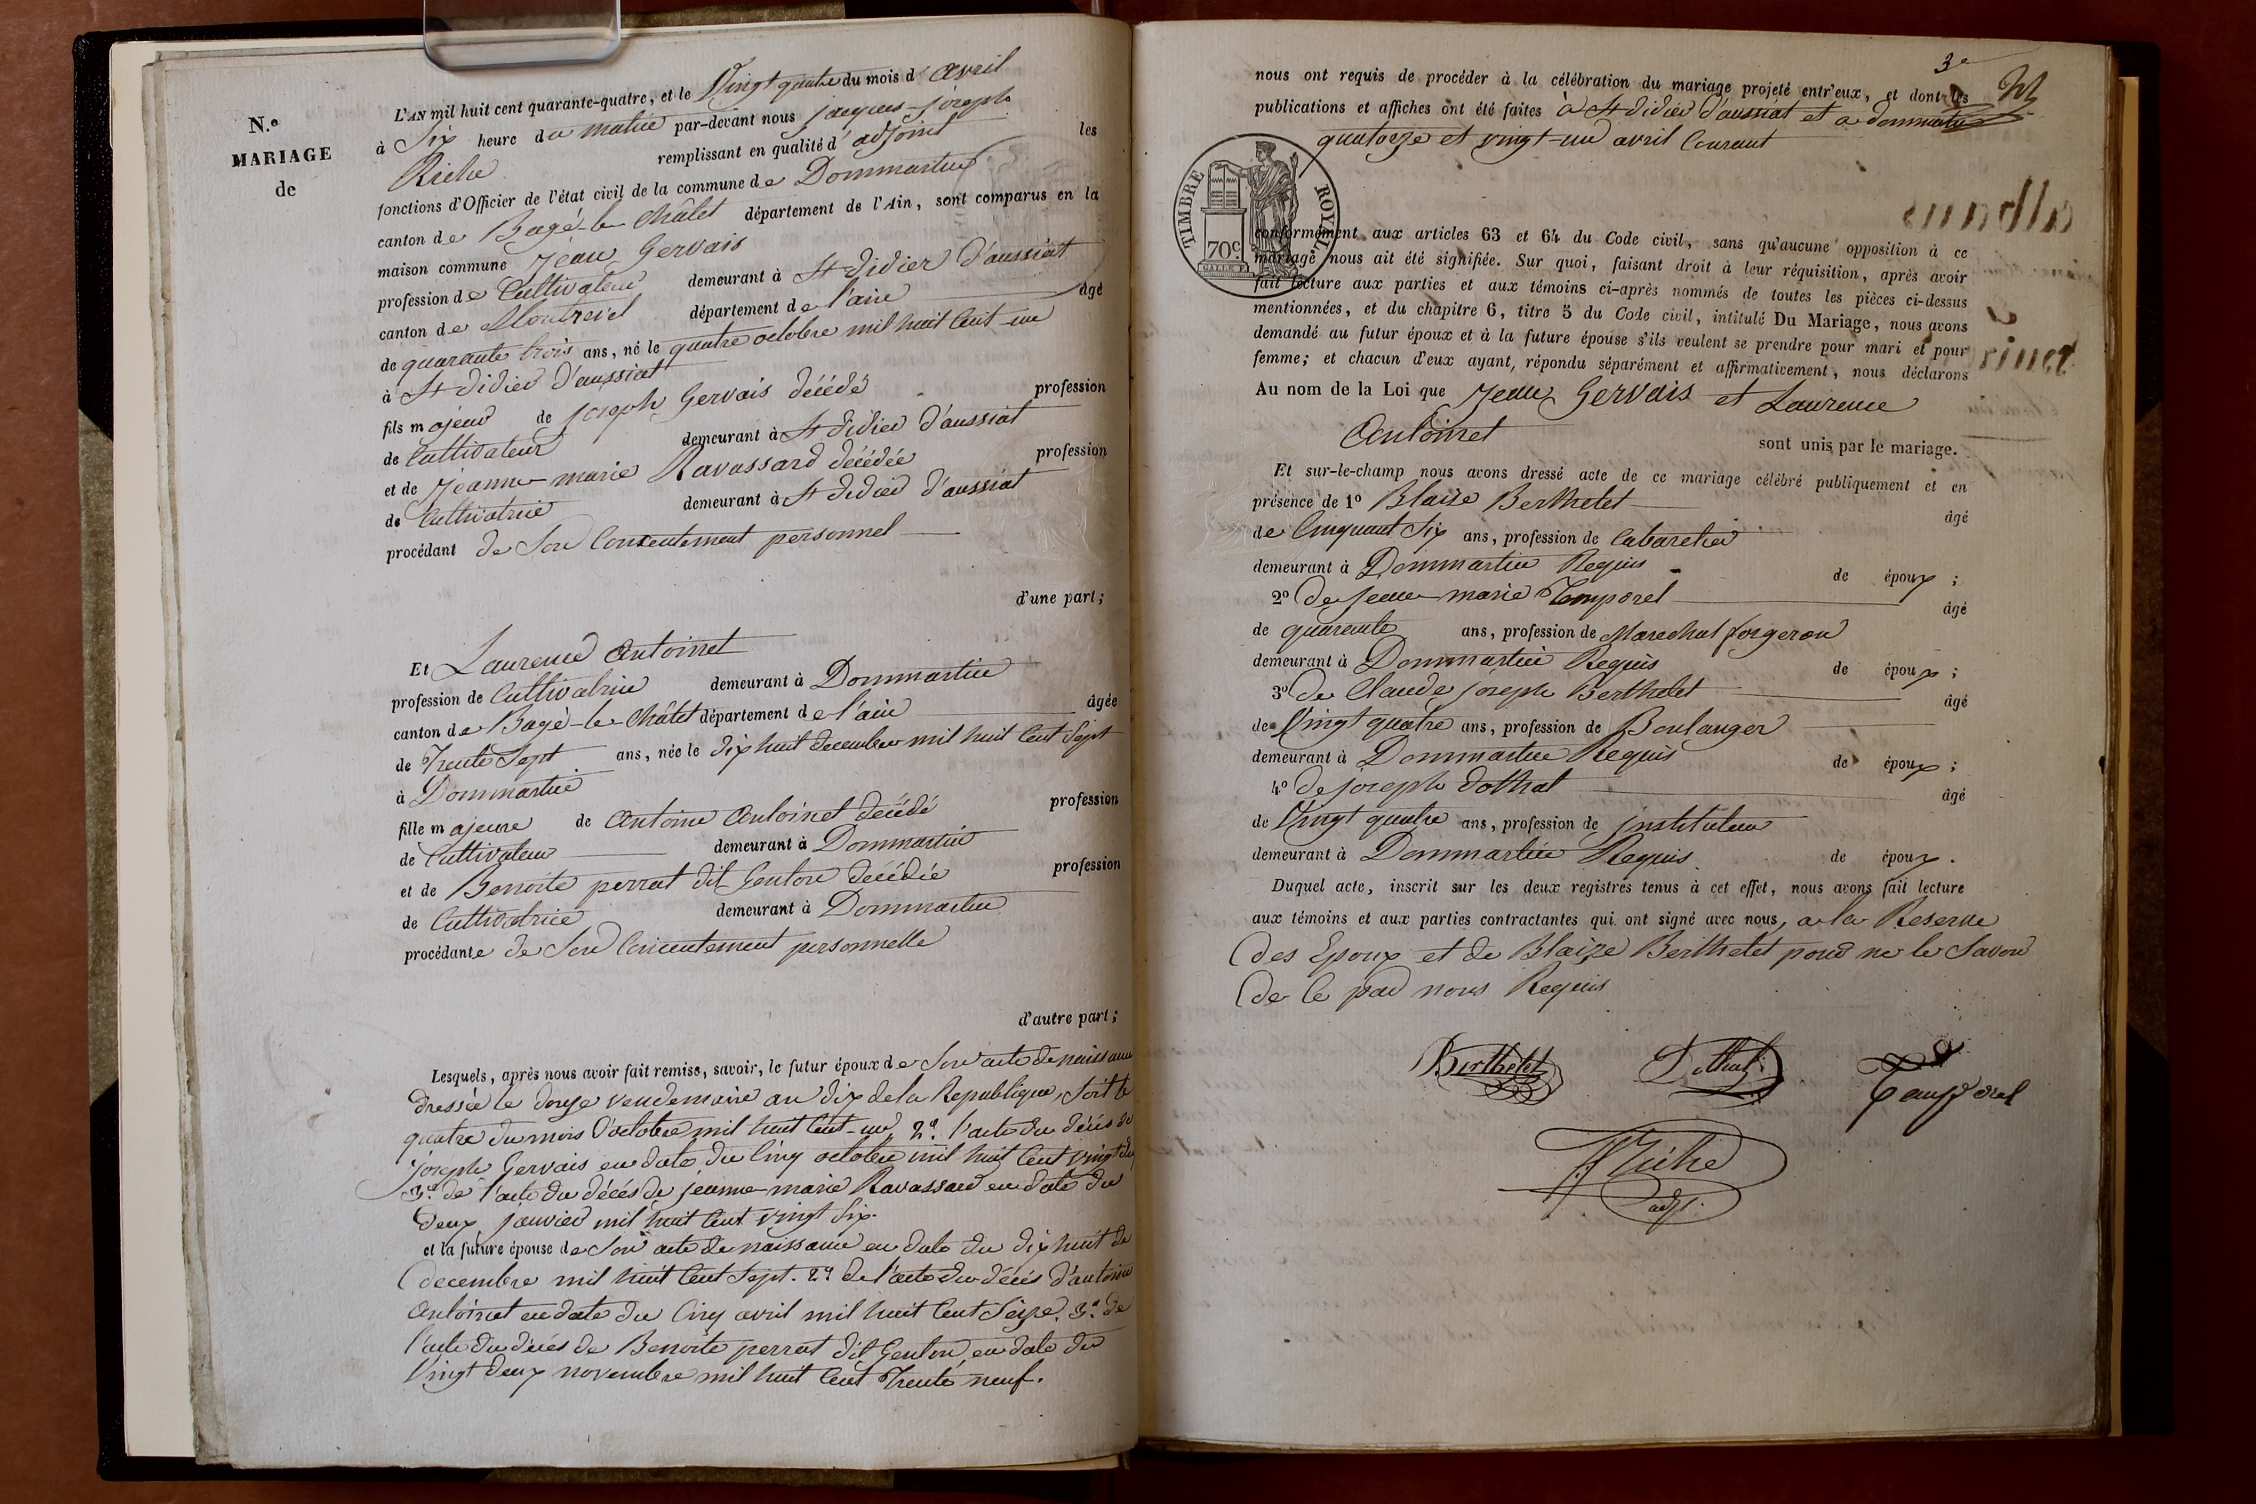 N.o
MARIAGE
de
L'AN mil huit cent quarante-quatre, et le Vingt quatre du mois d' avril
à Six heure du matin par-devant nous jacques-joseph
Riche remplissant en qualité d'adjoint les
fonctions d'Officier de l'état civil de la commune de Dommartin
canton de Bagé-le-Châtel département de l'Ain, sont comparus en la
maison commune Jean Gervais
profession de Cultivateur demeurant à St didier d'aussiat
canton de Montrevel département de l'ain âgé
de quarante trois ans, né le quatre octobre mil huit Cent-un
à St didier d'aussiat
fils majeur de joseph Gervais décédé profession
de Cultivateur demeurant à St didier d'aussiat
et de Jeanne-marie Ravassard décédée profession
de Cultivatrice demeurant à St didier d'aussiat
procédant de Son Consentement personnel
d'une part;
Et Laurence Antoinet
profession de Cultivatrice demeurant à Dommartin
canton de Bagé-le-Châtel département de l'ain âgée
de Trente Sept ans, née le dix huit decembre mil huit Cent Sept
à Dommartin
fille majeure de Antoine Antoinet décédé profession
de Cultivateur demeurant à Dommartin
et de Benoite perrat dit Genton décédée profession
de Cultivatrice demeurant à Dommartin
procédante de Son Consentement personnelle
d'autre part;
Lesquels, après nous avoir fait remise, savoir, le futur époux de Son acte de naissance
dressée le douze vendemaire an dix de la Republique, Soit le
quatre du mois d'octobre mil huit Cent-un 2o. l'acte du décés de
joseph Gervais en date du Cinq octobre mil huit Cent vingt
3o. de l'acte du décés de jeanne-marie Ravassard en date du
deux janvier mil huit Cent vingt Six.
et la future épouse de Son acte de naissance en date du dix huit de
decembre mil huit Cent Sept. 2o de l'acte du décés d'antoine
Antoinet en date du Cinq avril mil huit Cent Seize. 3o. de
l'acte du décés de Benoite perrat dit Genton, en date du
Vingt deux novembre mil huit Cent Trente neuf.
3e
nous ont requis de procéder à la célébration du mariage projeté entr'eux, et dont les
publications et affiches ont été faites à St didier d'aussiat et a dommartin
quatorze et vingt-un avril Courant
TIMBRE ROYAL.
70c
conformément aux articles 63 et 64 du Code civil, sans qu'aucune opposition à ce
mariage nous ait été signifiée. Sur quoi, faisant droit à leur réquisition, après avoir
fait lecture aux parties et aux témoins ci-après nommés de toutes les pièces ci-dessus
mentionnées, et du chapitre 6, titre 5 du Code civil, intitulé Du Mariage, nous avons
demandé au futur époux et à la future épouse s'ils veulent se prendre pour mari et pour
femme; et chacun d'eux ayant, répondu séparément et affirmativement, nous déclarons
Au nom de la Loi que Jean Gervais et Laurence
Antoinet sont unis par le mariage.
Et sur-le-champ nous avons dressé acte de ce mariage célébré publiquement et en
présence de 1o Blaize Berthelet âgé
de Cinquant Six ans, profession de Cabaretier
demeurant à Dommartin Requis de époux ;
2o de jean-marie Temporel âgé
de quarante ans, profession de Marechal forgeron
demeurant à Dommartin Requis de époux ;
3o de Claude joseph Berthelet âgé
de Vingt quatre ans, profession de Boulanger
demeurant à Dommartin Requis de époux ;
4o de joseph dothal âgé
de Vingt quatre ans, profession de instituteur
demeurant à Dommartin Requis de époux.
Duquel acte, inscrit sur les deux registres tenus à cet effet, nous avons fait lecture
aux témoins et aux parties contractantes qui ont signé avec nous, a la Reserve
des Epoux et de Blaize Berthelet pour ne le Savoir
de ce par nous Requis
Berthelet Dothal Temporel
Riche
adj.